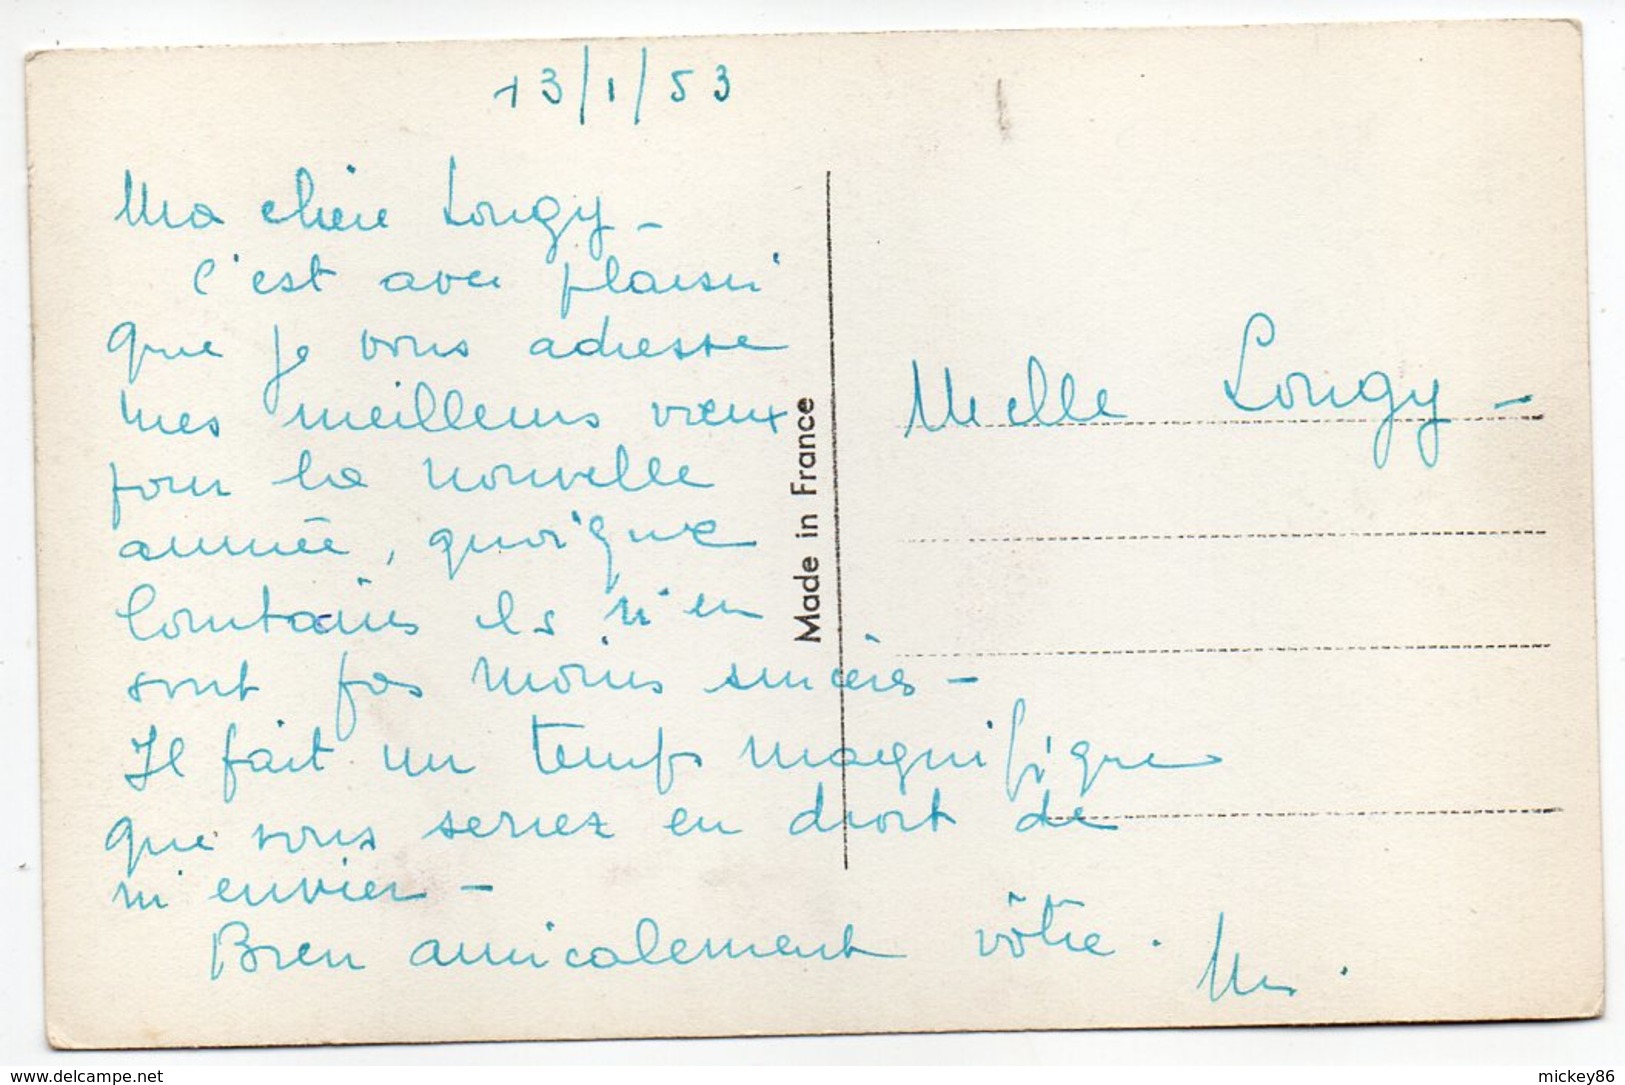 13/1/53
Ma chère Longy -
C'est avec plaisir
que je vous adresse
mes meilleurs vœux
pour la nouvelle
année, quoique
lointains ils n'en
sont pas moins sincères -
Il fait un temps magnifique
que vous seriez en droit de
m'envier -
Bien amicalement vôtre.
Made in France
Melle Longy -
www.delcampe.net
mickey86